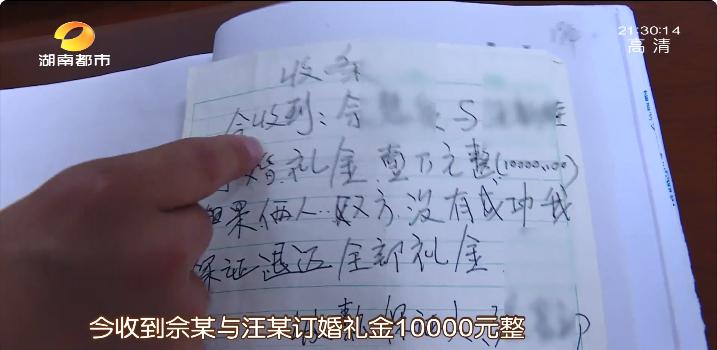 湖南都市
21:30:14
高清
收条
今收到：佘
婚礼金壹万元整(10000.00)
如果俩人双方没有成功我
保证退还全部礼金
今收到佘某与汪某订婚礼金10000元整